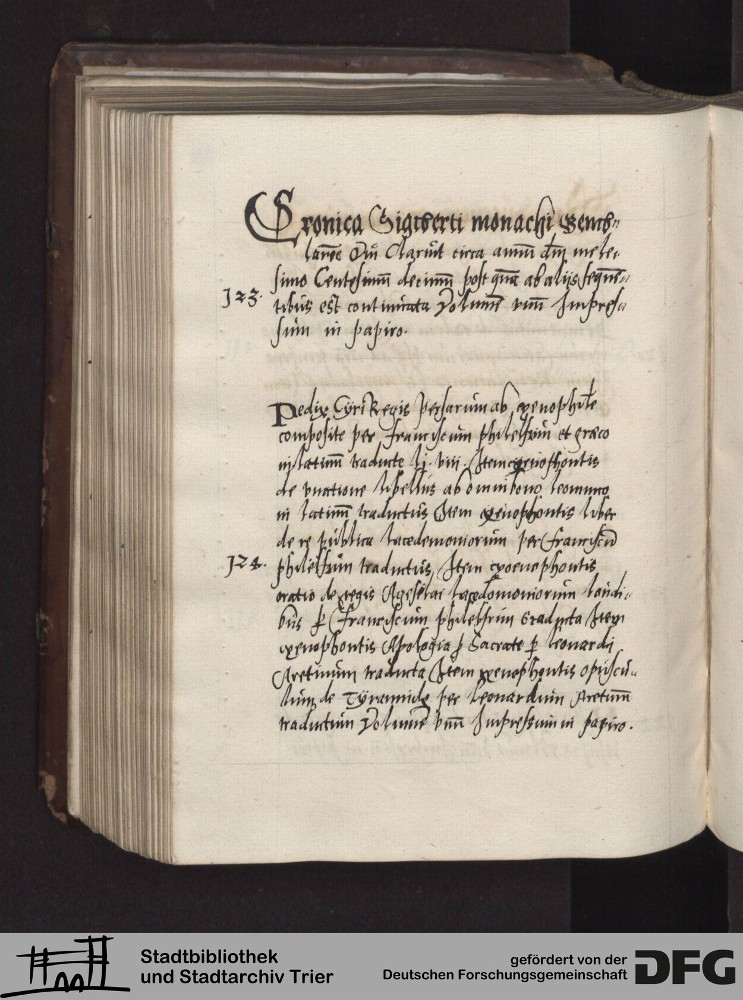 Cronica Sigiberti monachi Gemb-
lacen Qui Claruit circa annum dm mile-
simo Centesimum decimum post quam ab alijs sequen-
123. tibus est continuata Volumen vnum Impres-
sum in papiro.
Pedia Cyri Regis Persarum ab xenophõte
composite per Franciscum philelfum et græco
in latinum traducte li. viii. Item xenophontis
de venatione libellus ab omnibono leoniceno
in latinum traductus Item xenophontis liber
de re publica lacedemoniorum per Franciscũ
124. philelfum traductus, Item xenophontis
oratio de regis Agiselai lacedemoniorum laudi-
bus per Franciscum philelfum traducta Item
xenophontis Apologia p Socrate per leonardũ
Aretinum traducta Item xenophontis opuscu-
lum de Tyrannide per leonardum Aretinum
traductum Volumen vnum Impressum in papiro.
Stadtbibliothek
und Stadtarchiv Trier
gefördert von der
Deutschen Forschungsgemeinschaft
DFG